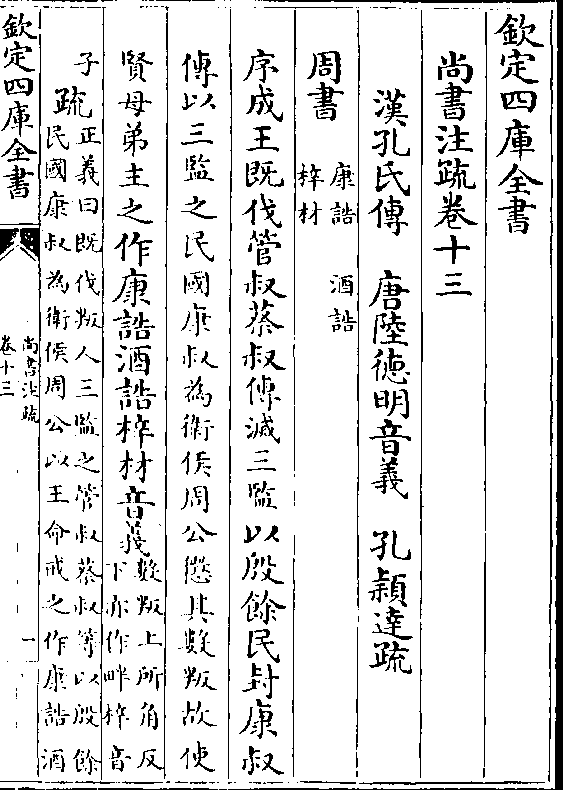 欽定四庫全書
尚書注疏卷十三
漢孔氏傳 唐陸德明音義 孔穎達疏
周書
康誥 酒誥
梓材
序成王既伐管叔蔡叔傳滅三監以殷餘民封康叔
傳以三監之民國康叔為衛侯周公懲其數叛故使
賢母弟主之作康誥酒誥梓材音義
數叛上所角反
下亦作畔梓音
子
疏
正義曰既伐叛人三監之管叔蔡叔等以殷餘
民國康叔為衛侯周公以王命戒之作康誥酒
欽定四庫全書
尚書注疏
卷十三
一